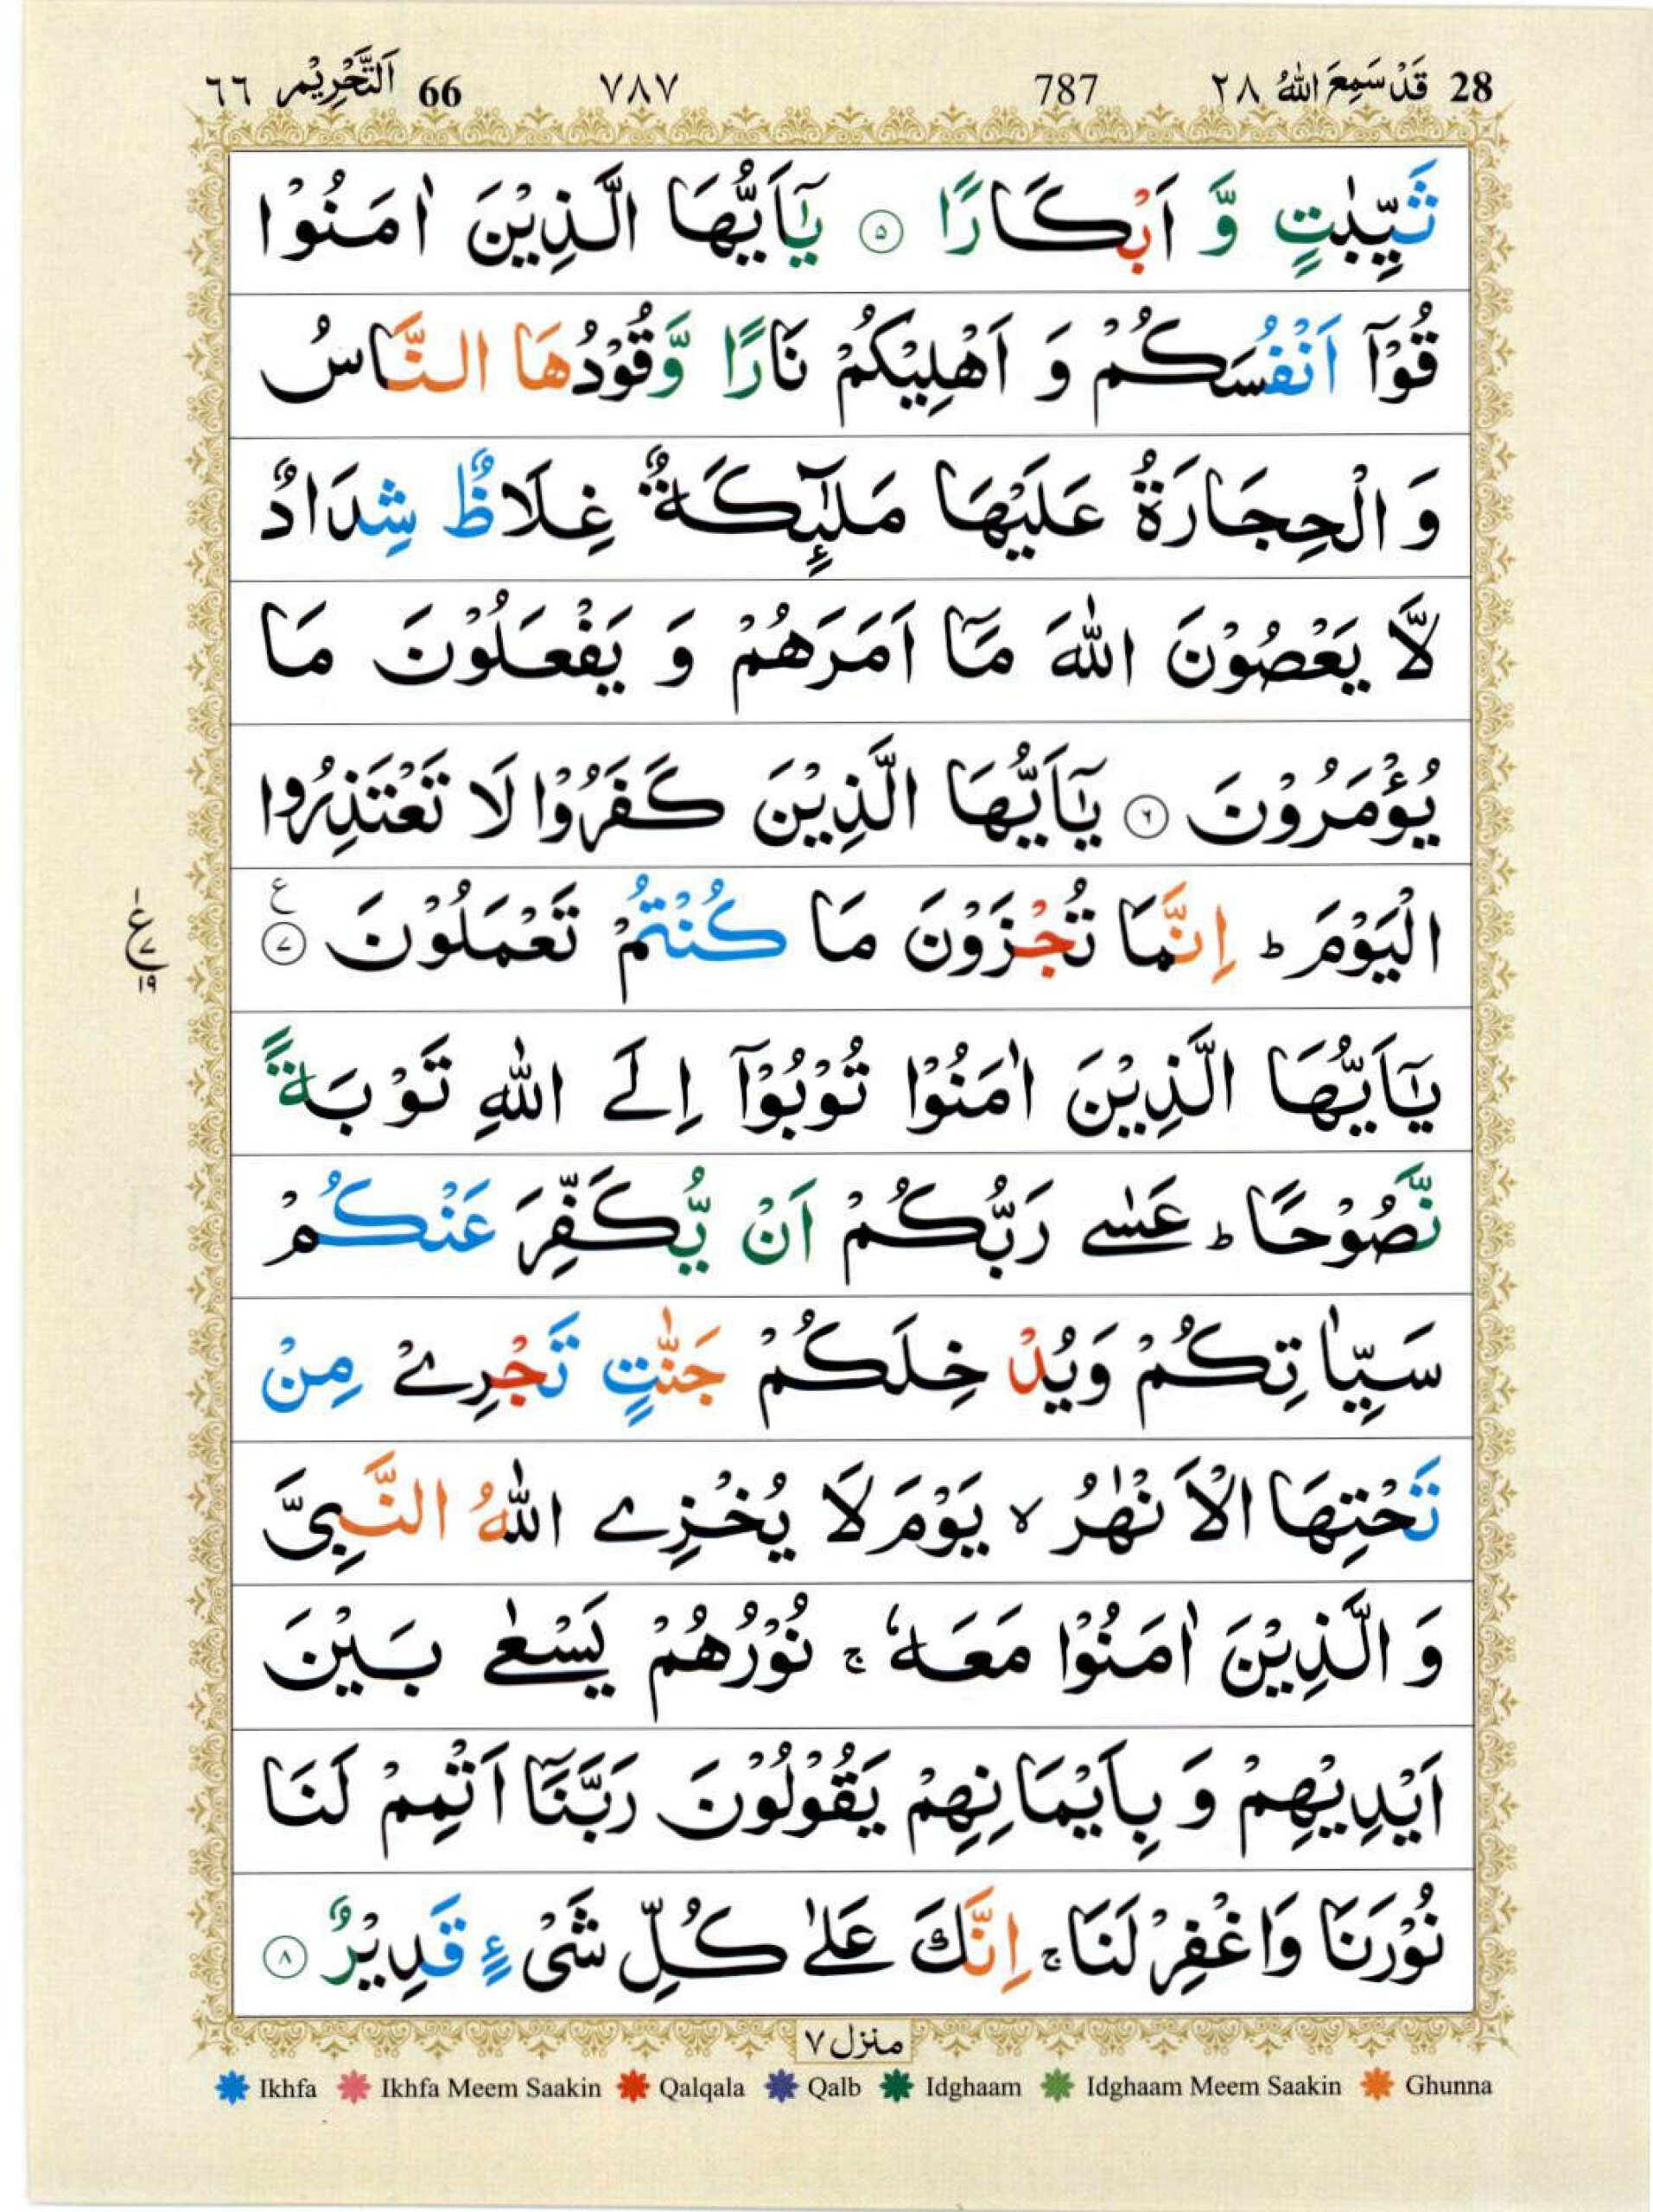 28 قَدْ سَمِعَ اللّٰهُ ٢٨ 787 ٧٨٧ 66 اَلتَّحْرِيْم ٦٦
ثَيِّبٰتٍ وَّ اَبْكَارًا ۝٥ يٰۤاَيُّهَا الَّذِيْنَ اٰمَنُوْا
قُوْۤا اَنْفُسَكُمْ وَ اَهْلِيْكُمْ نَارًا وَّقُوْدُهَا النَّاسُ
وَ الْحِجَارَةُ عَلَيْهَا مَلٰٓئِكَةٌ غِلَاظٌ شِدَادٌ
لَّا يَعْصُوْنَ اللّٰهَ مَاۤ اَمَرَهُمْ وَ يَفْعَلُوْنَ مَا
يُؤْمَرُوْنَ ۝٦ يٰۤاَيُّهَا الَّذِيْنَ كَفَرُوْا لَا تَعْتَذِرُوا
الْيَوْمَ ؕ اِنَّمَا تُجْزَوْنَ مَا كُنْتُمْ تَعْمَلُوْنَ ۝٧ ع
ع ٧ ١٩
يٰۤاَيُّهَا الَّذِيْنَ اٰمَنُوْا تُوْبُوْۤا اِلَى اللّٰهِ تَوْبَةً
نَّصُوْحًا ؕ عَسٰى رَبُّكُمْ اَنْ يُّكَفِّرَ عَنْكُمْ
سَيِّاٰتِكُمْ وَيُدْخِلَكُمْ جَنّٰتٍ تَجْرِيْ مِنْ
تَحْتِهَا الْاَنْهٰرُ ۙ يَوْمَ لَا يُخْزِي اللّٰهُ النَّبِيَّ
وَ الَّذِيْنَ اٰمَنُوْا مَعَهٗ ۚ نُوْرُهُمْ يَسْعٰى بَيْنَ
اَيْدِيْهِمْ وَ بِاَيْمَانِهِمْ يَقُوْلُوْنَ رَبَّنَاۤ اَتْمِمْ لَنَا
نُوْرَنَا وَاغْفِرْ لَنَا ۚ اِنَّكَ عَلٰى كُلِّ شَيْءٍ قَدِيْرٌ ۝٨
منزل ٧
Ikhfa Ikhfa Meem Saakin Qalqala Qalb Idghaam Idghaam Meem Saakin Ghunna